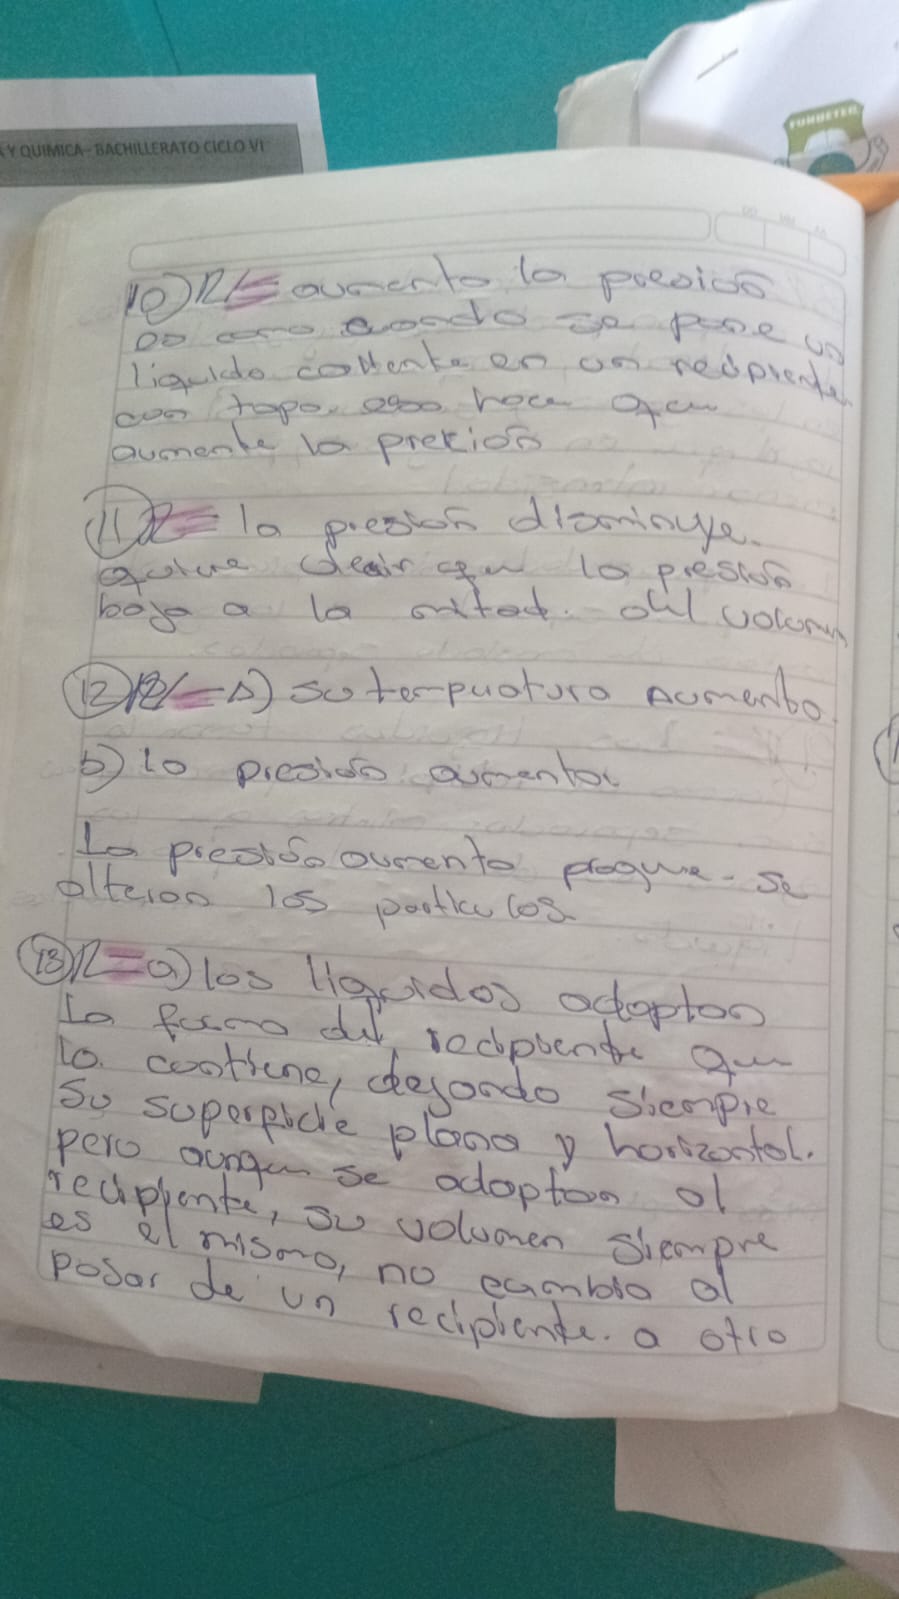 A Y QUIMICA- BACHILLERATO CICLO VI
FURGETEC
10) R/= aumenta la presion
es como cuando se pone un
liquido caliente en un recipiente
con tapa. eso hace que
aumente la precion
11) R= la presion disminuye.
quiere decir que la presion
baja a la mitad. del volumen
12) R/- A) su temperatura Aumenta
b) la presion aumenta
La presion aumenta porque se
alteran las particulas
13) R= a) los liquidos adoptan
la forma del recipiente que
lo contiene, dejando siempre
su superficie plana y horizontal.
pero aunque se adaptan al
recipiente, su volumen siempre
es el mismo, no cambia al
pasar de un recipiente. a otro